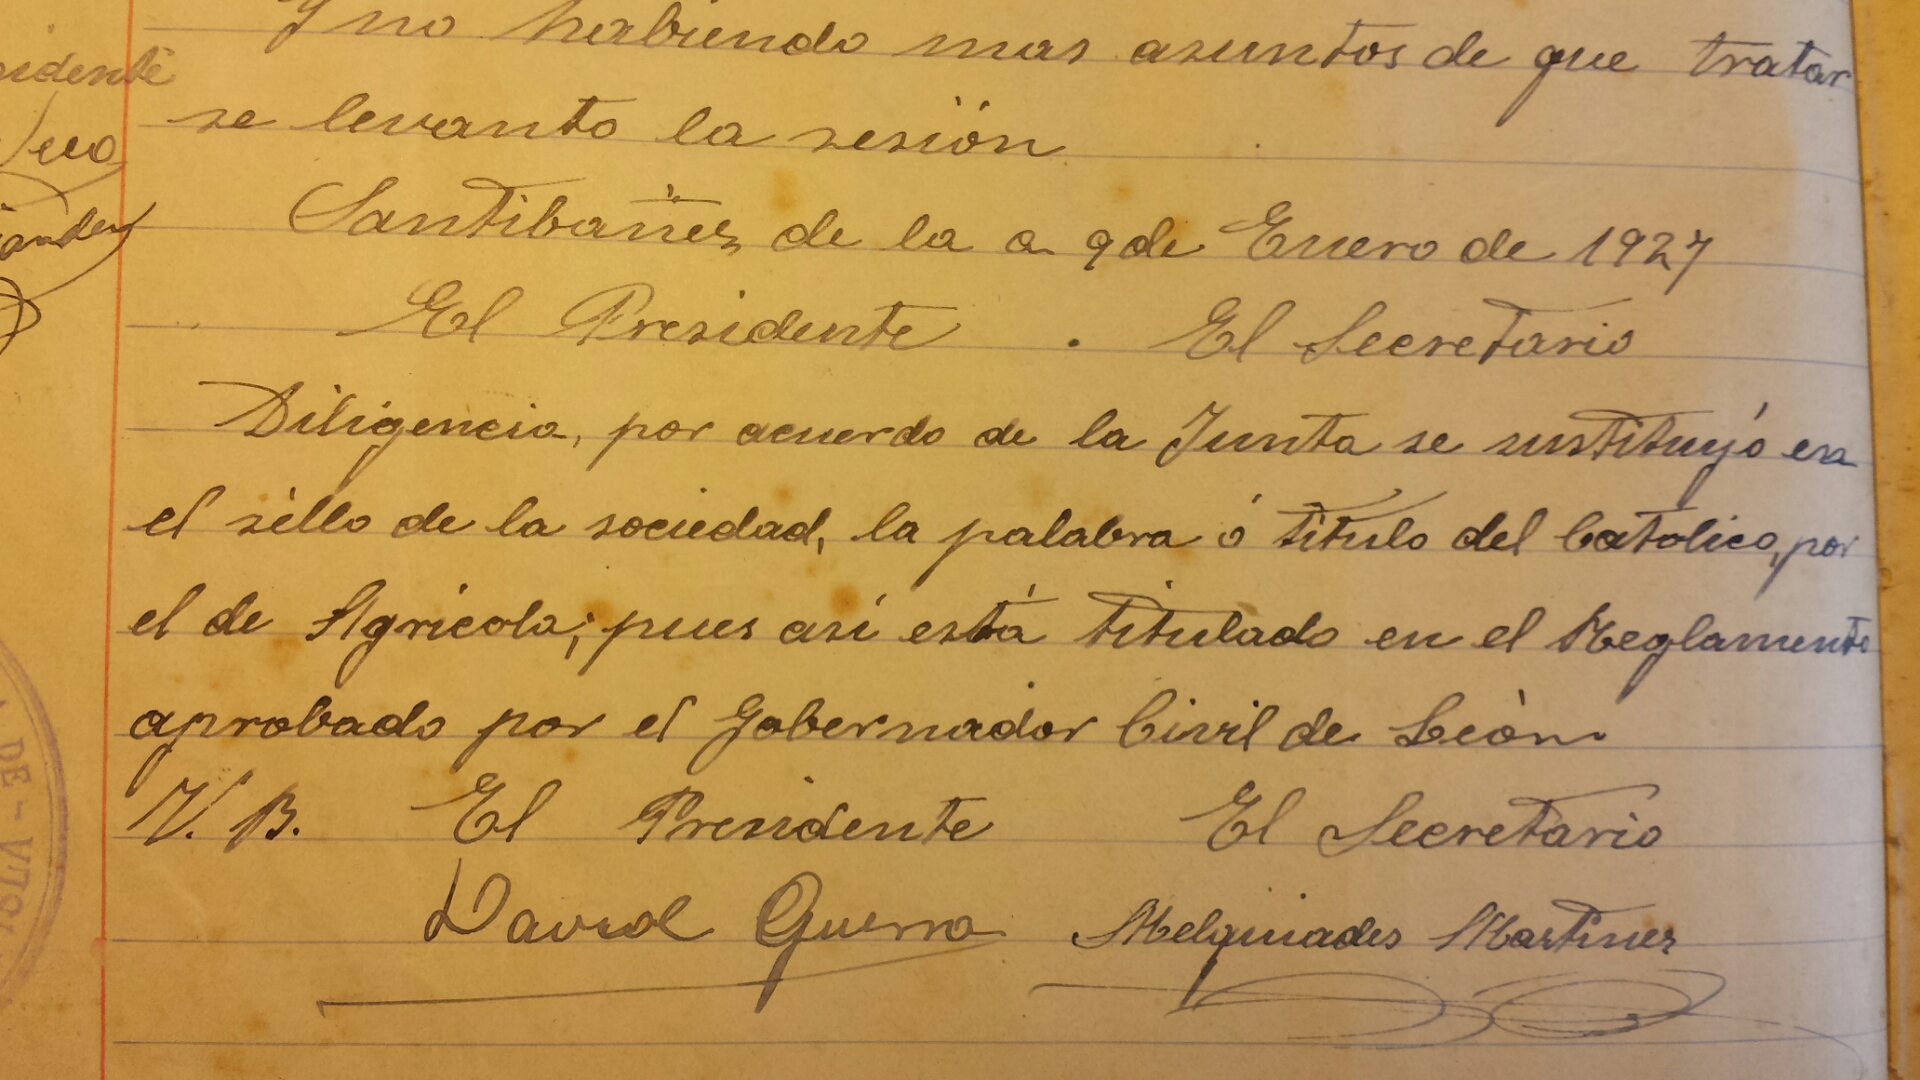 Y no habiendo mas asuntos de que tratar
se levanto la sesión
Santibañez de la a 9 de Enero de 1927
El Presidente . El Secretario
Diligencia, por acuerdo de la Junta se sustituyó en
el sello de la sociedad, la palabra ó titulo del Catolico, por
el de Agrícola; pues así está titulado en el Reglamento
aprobado por el Gobernador Civil de León
V. B. El Presidente El Secretario
David Guerra Melquiades Martinez
DE -